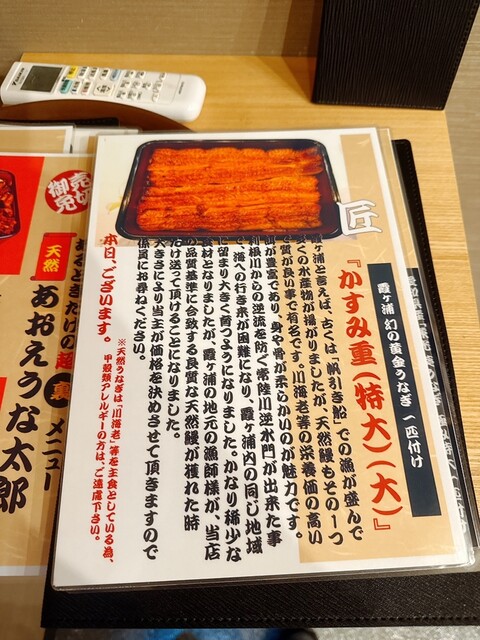 匠
霞ヶ浦 幻の黄金うなぎ 一匹付け
『かすみ重(特大)(大)』
霞ヶ浦と言えば、古くは「帆引き船」での漁が盛んで
多くの水産物が揚がりましたが、天然鰻もその1つ
で質が良い事で有名です。川海老等の栄養価の高い
餌が豊富であり、身や骨が柔らかいのが魅力です。
利根川からの逆流を防ぐ常陸川逆水門が出来た事
で、海への行き来が困難になり、霞ヶ浦内の同じ地域
に留まり大きく育つようになりました。かなり稀少な
食材となりましたが、霞ヶ浦の地元の漁師様が、当店
の品質基準に合致する良質な天然鰻が獲れた時
だけ送って頂けることになりました。
大きさにより当主が価格を決めさせて頂きますので
係員にお尋ねください。
本日、ございます。
※天然うなぎは「川海老」等を主食としている為、
甲殻類アレルギーの方は、ご遠慮下さい。
売切
御免
天然
あるときだけの超裏メニュー
あおえうな太郎